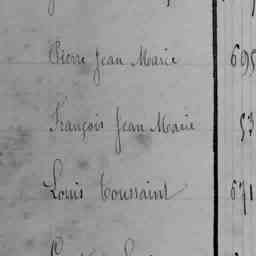 Pierre Jean Marie 695
François Jean Marie 53
Louis Toussaint 671